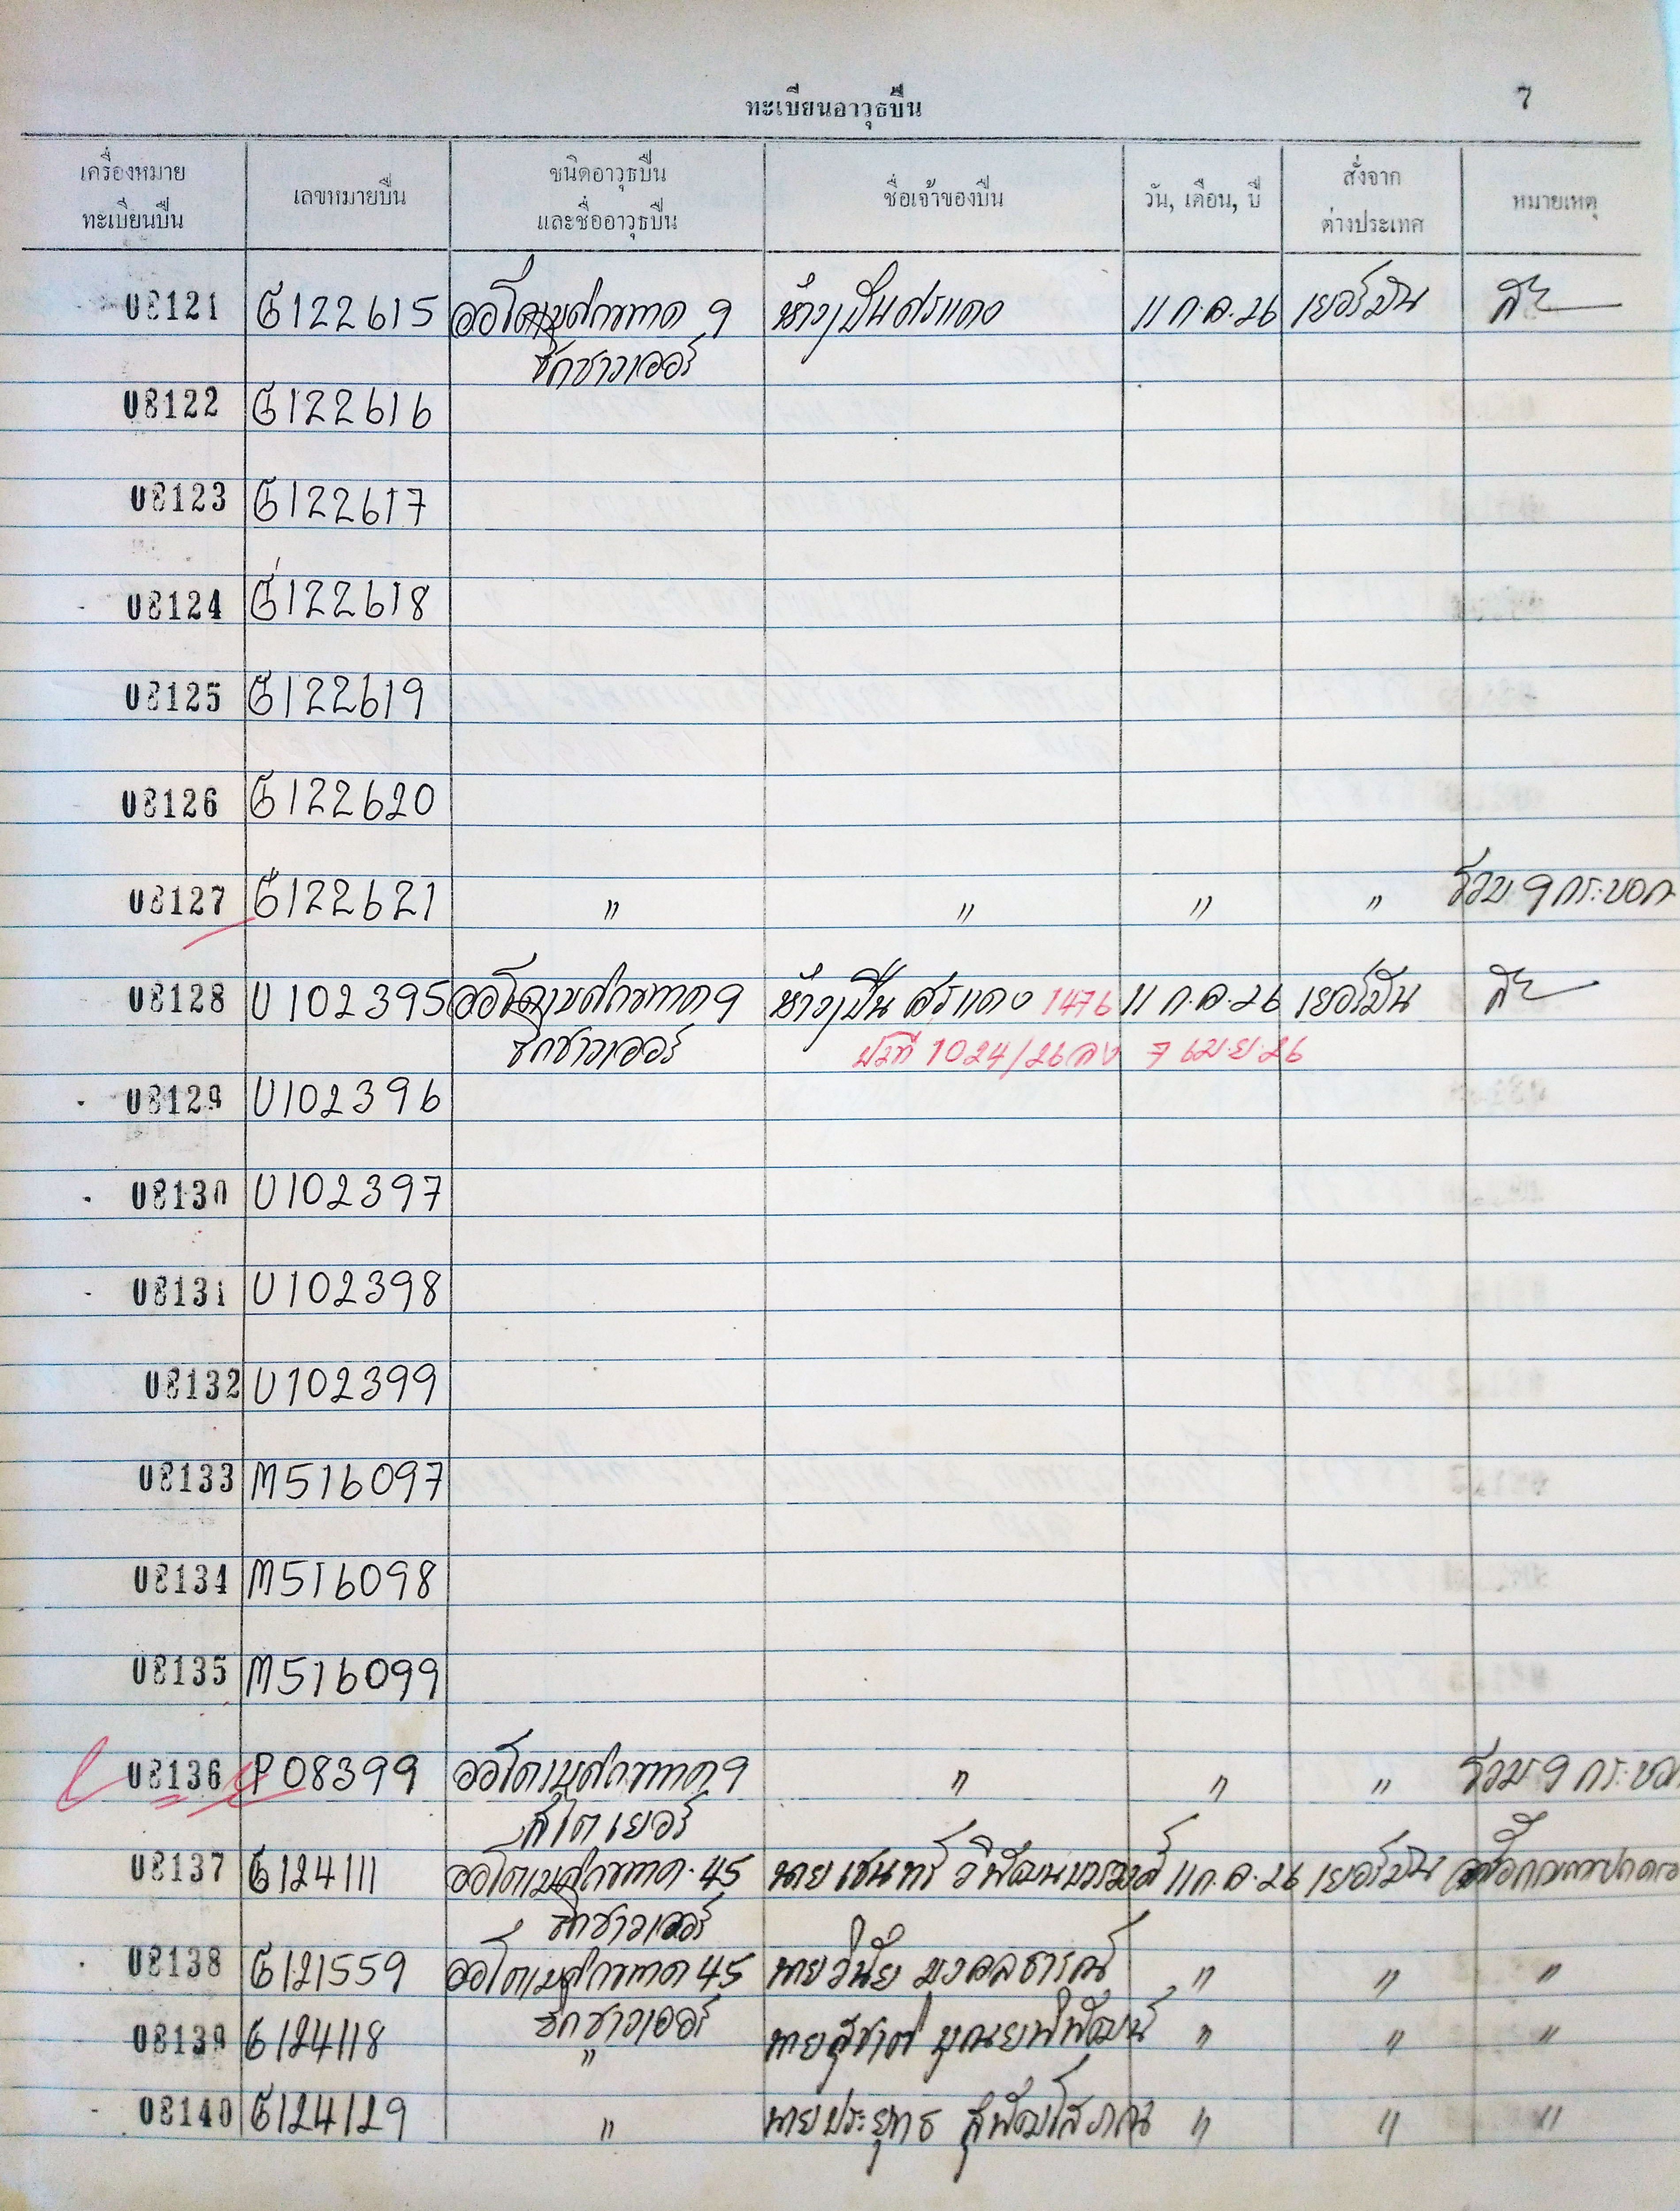 ทะเบียนอาวุธปืน 7
เครื่องหมาย ทะเบียนปืน เลขหมายปืน ชนิดอาวุธปืน และชื่ออาวุธปืน ชื่อเจ้าของปืน วัน, เดือน, ปี สั่งจาก ต่างประเทศ หมายเหตุ
08121 G122615 ออโตเมติกขนาด 9 ห้างปืนศรแดง 11 ก.ค.26 เยอรมัน
ซิกซาวเออร์
08122 G122616
08123 G122617
08124 G122618
08125 G122619
08126 G122620
08127 G122621 " " " " รวม 9 กระบอก
08128 U102395 ออโตเมติกขนาด 9 ห้างปืน ศรแดง 1476 11 ก.ค.26 เยอรมัน
ซิกซาวเออร์ 1024/26 ลง 7 เม.ย.26
08129 U102396
08130 U102397
08131 U102398
08132 U102399
08133 M516097
08134 M516098
08135 M516099
08136 P08399 ออโตเมติกขนาด 9 " " " รวม 9 กระบอก
สไตเยอร์
08137 G124111 ออโตเมติกขนาด .45 นายเชนทร์ วิพัฒนบวรวงศ์ 11 ก.ค.26 เยอรมัน
ซิกซาวเออร์
08138 G121559 ออโตเมติกขนาด 45 นายวินัย มงคลธารณ์ " " "
ซิกซาวเออร์
08139 G124118 " นายสุชาติ บุณยพิพัฒน์ " " "
08140 G124129 " นายประยุทธ สุพัฒโสภณ " " "